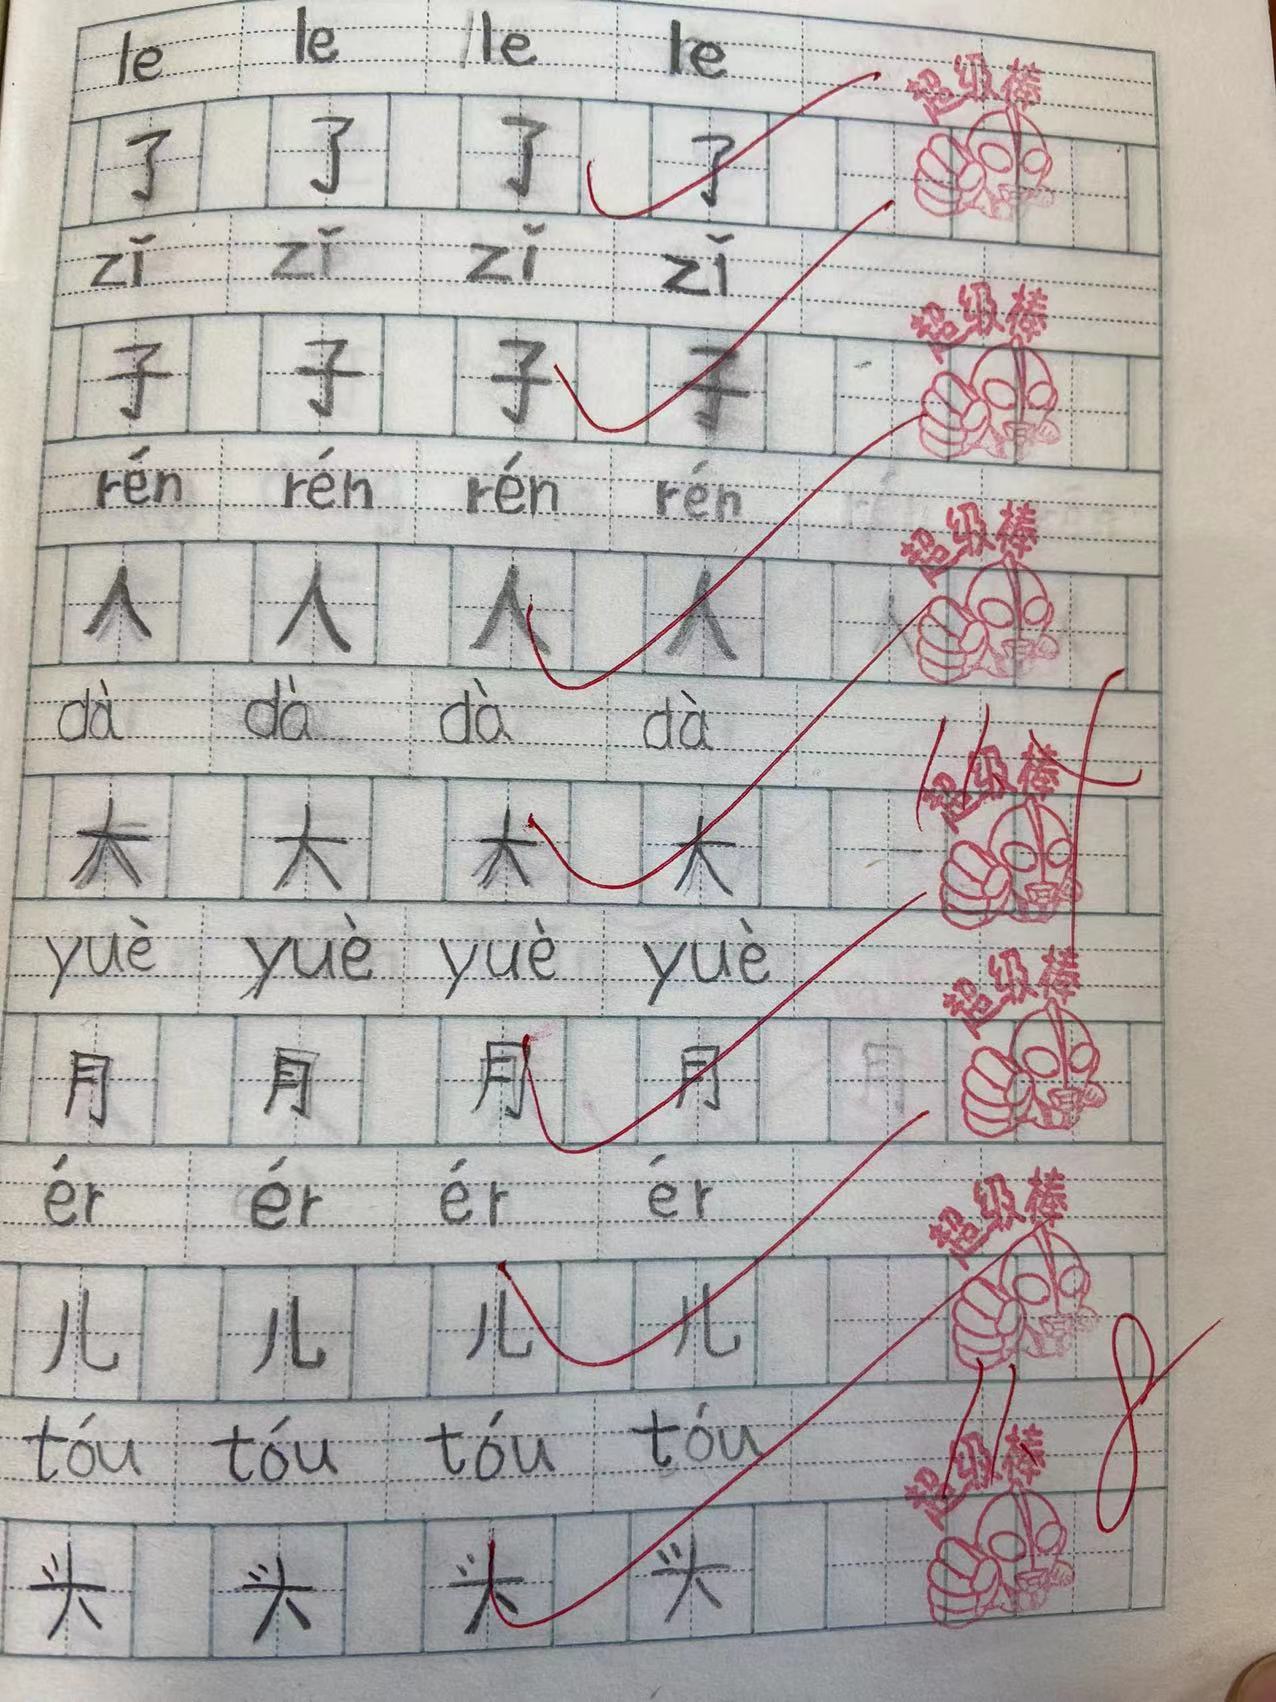 le le le le 超级棒
了 了 了 了
zǐ zǐ zǐ zǐ 超级棒
子 子 子 子
rén rén rén rén 超级棒
人 人 人 人
dà dà dà dà 超级棒
大 大 大 大
yuè yuè yuè yuè 超级棒
月 月 月 月
ér ér ér ér 超级棒
儿 儿 儿 儿
tóu tóu tóu tóu 超级棒
头 头 头 头